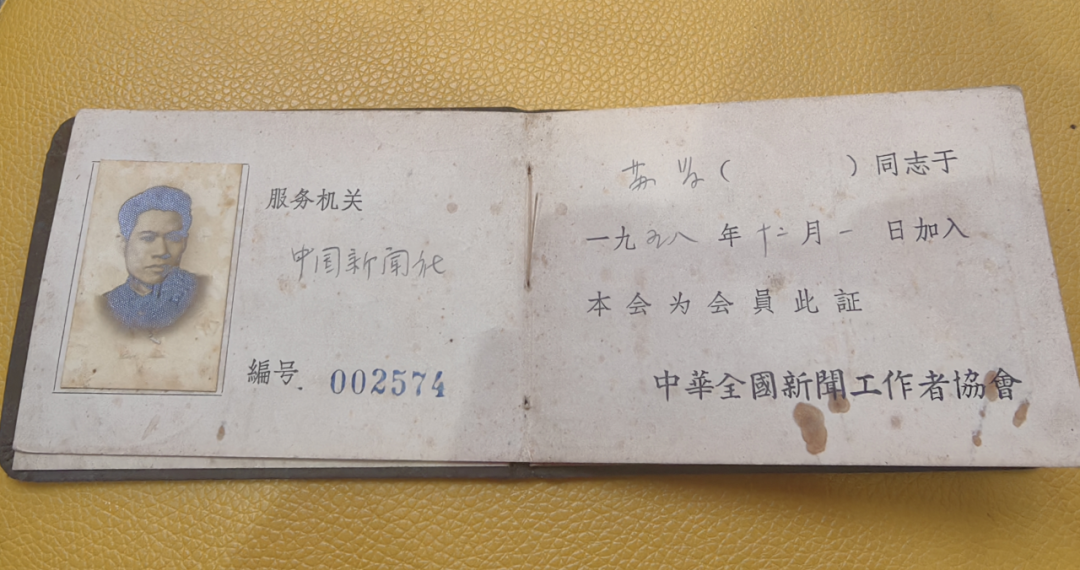 服务机关
中国新闻社
編号. 002574
( ) 同志于
一九五八 年 十二 月 一 日加入
本会为会員此証
中華全國新聞工作者協會